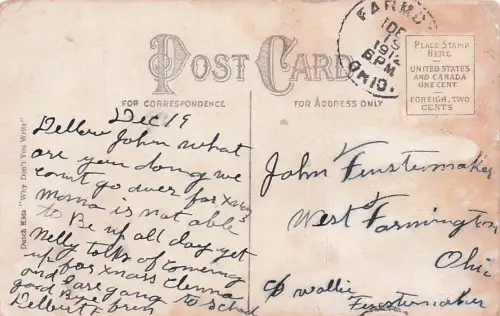 POST CARD
FOR CORRESPONDENCE
FOR ADDRESS ONLY
PLACE STAMP
HERE
UNITED STATES
AND CANADA
ONE CENT.
FOREIGN, TWO
CENTS
DE
19
1912
6PM
OHIO.
Dutch Kids "Why Don't You Write"
Dec 19
Hellow John what
are you doing we
cant go over for Xmas
Moma is not able
to Be up all day yet
Nelly talks of comeing
up for Xmas
and I are going to School
good Bye
Delbert
John Finstermaker
West Farmington
Ohio
c/o Wallie
Finstermaker